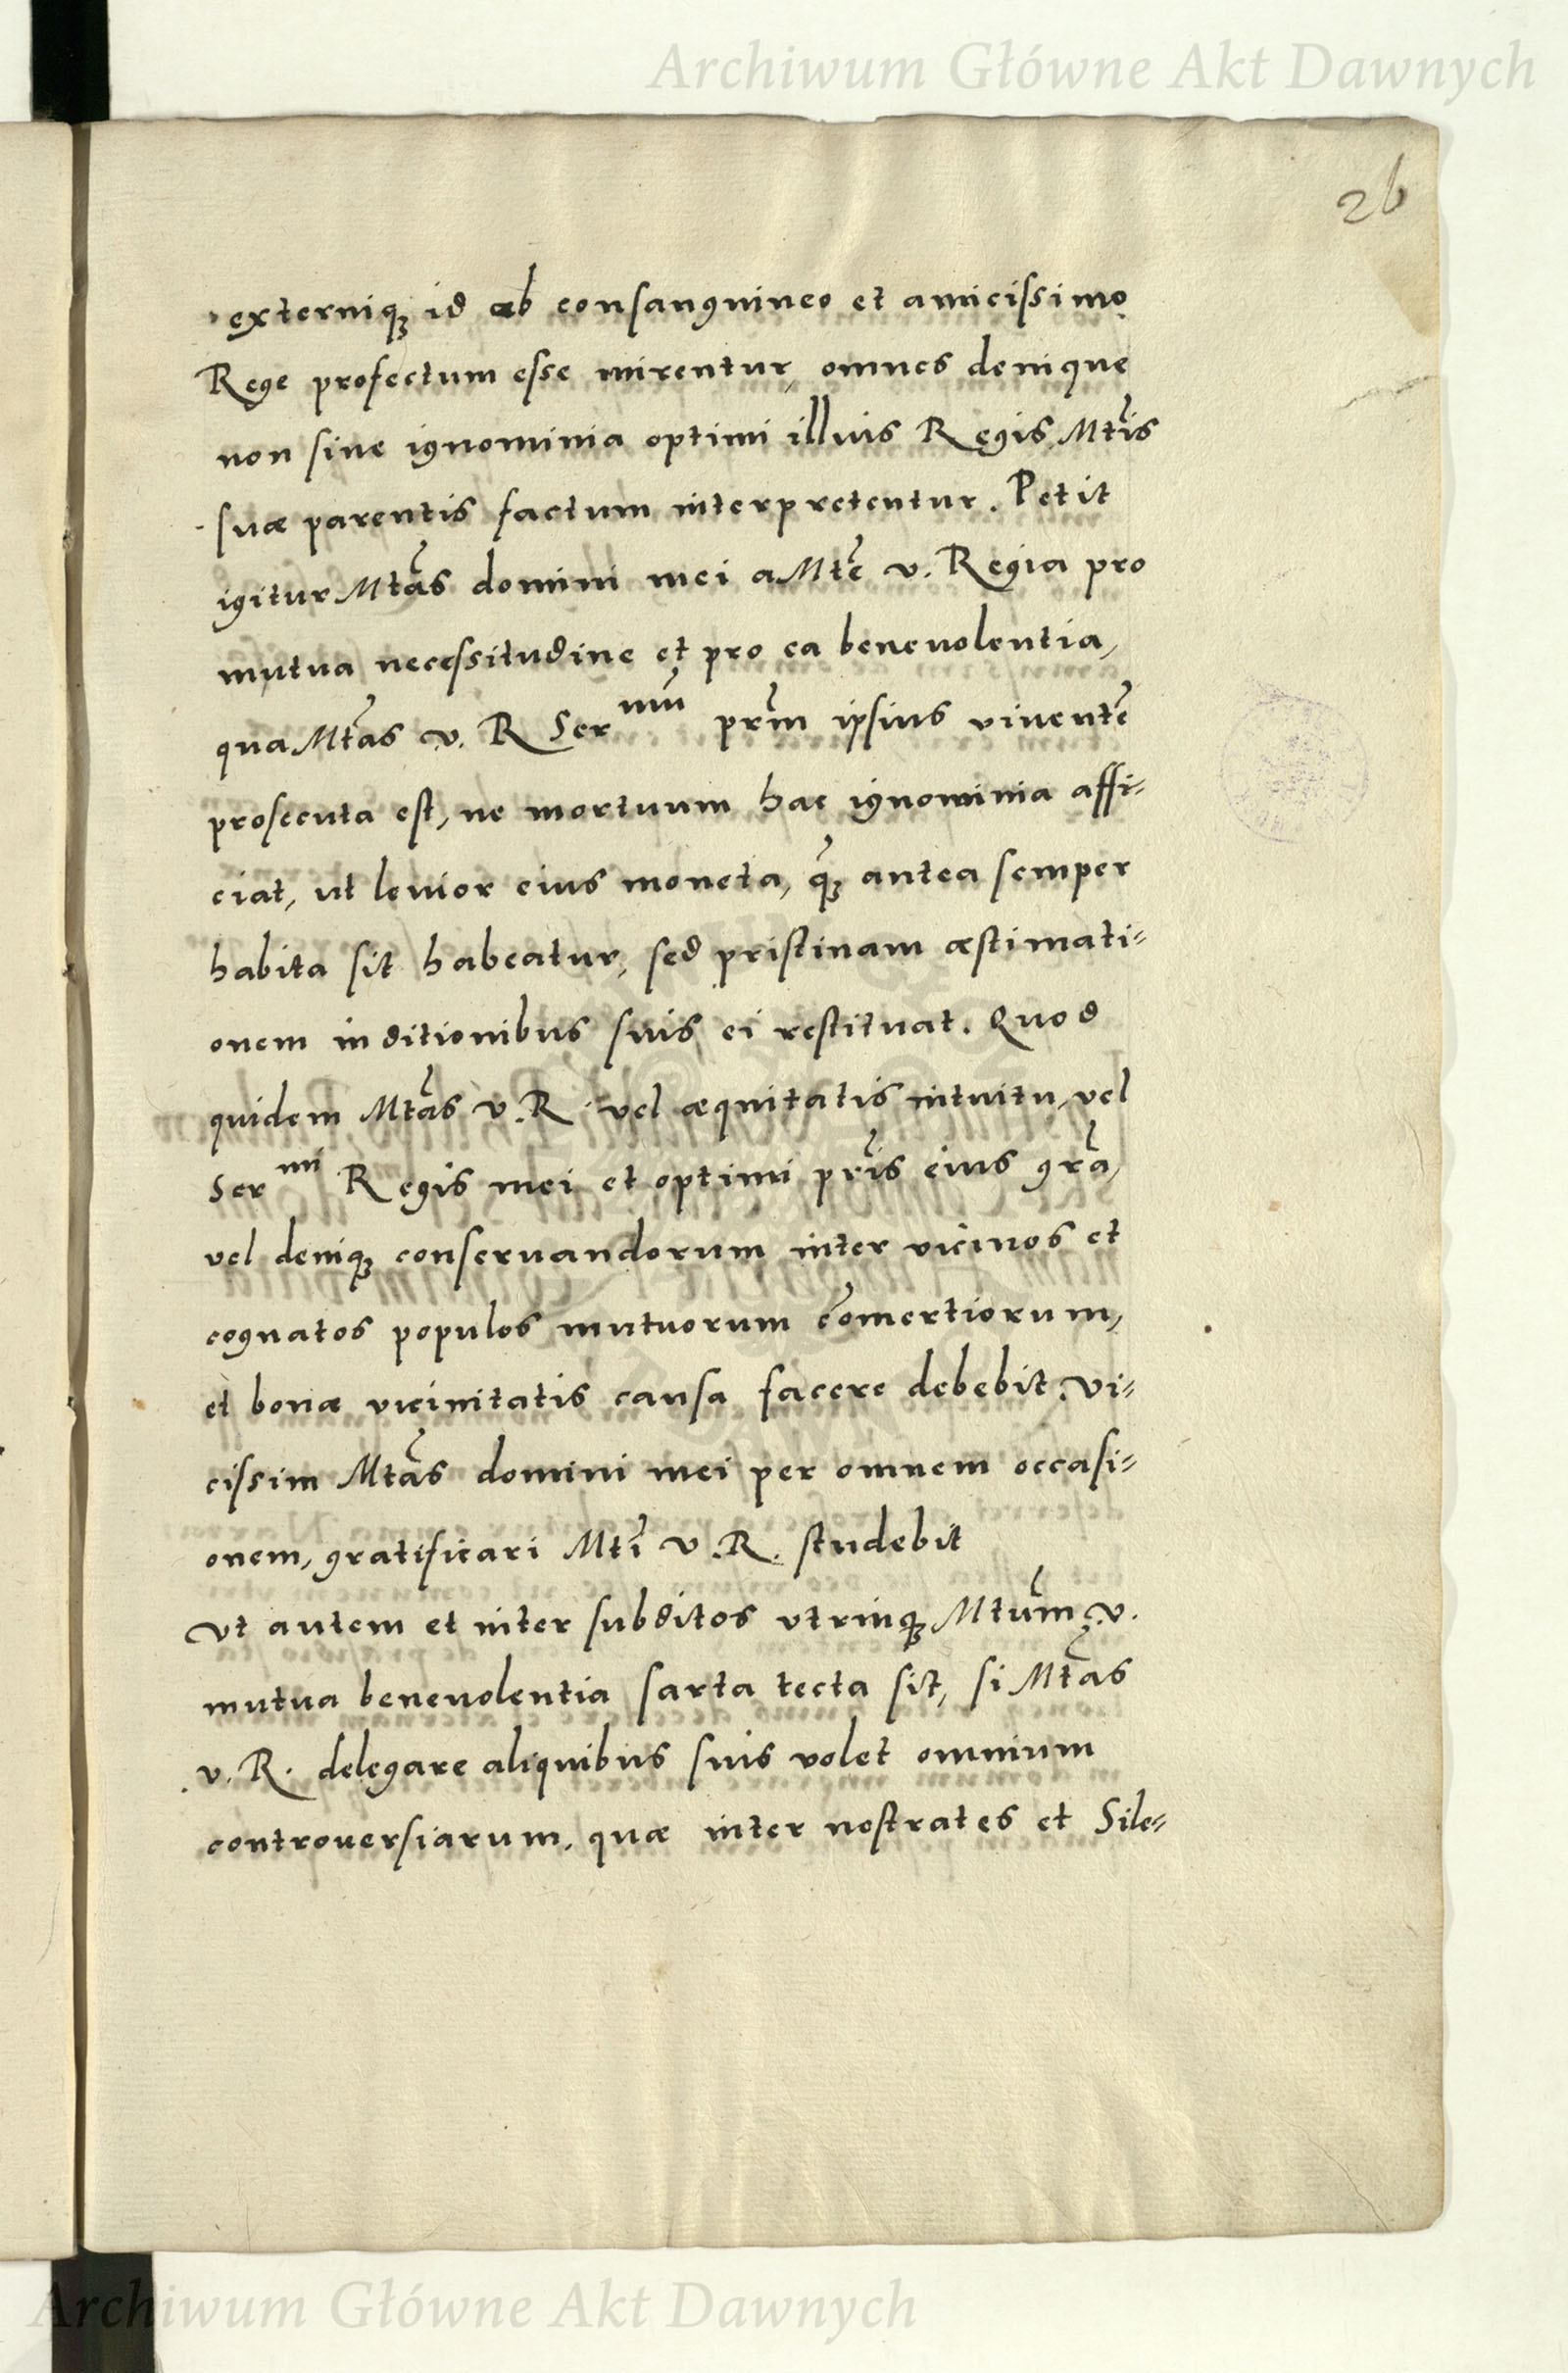 Archiwum Główne Akt Dawnych
26
externiqȝ id ab consanguineo et amicissimo
Rege profectum esse mirentur, omnes denique
non sine ignominia optimi illius Regis Mtis
suæ parentis factum interpretentur. Petit
igitur Mtas domini mei a Mte v. Regia pro
mutua necessitudine et pro ea beneuolentia,
qua Mtas v. R Ser mū prm ipsius viuentē
prosecuta est, ne mortuum hac ignominia affi=
ciat, ut leuior eius moneta, qȝ antea semper
habita sit habeatur, sed pristinam æstimati=
onem in ditionibus suis ei restituat. Quod
quidem Mtas v. R. vel æquitatis intuitu, vel
Ser mi Regis mei et optimi pris eius gra,
vel deniqȝ conseruandorum inter vicinos et
cognatos populos mutuorum cōmertiorum,
et bonæ vicinitatis causa facere debebit. Vi=
cissim Mtas domini mei per omnem occasi=
onem, gratificari Mti v. R. studebit
Vt autem et inter subditos vtrinqȝ Mtum v.
mutua beneuolentia sarta tecta sit, si Mtas
v. R. delegare aliquibus suis volet omnium
controuersiarum, quæ inter nostrates et Sile=
Archiwum Główne Akt Dawnych